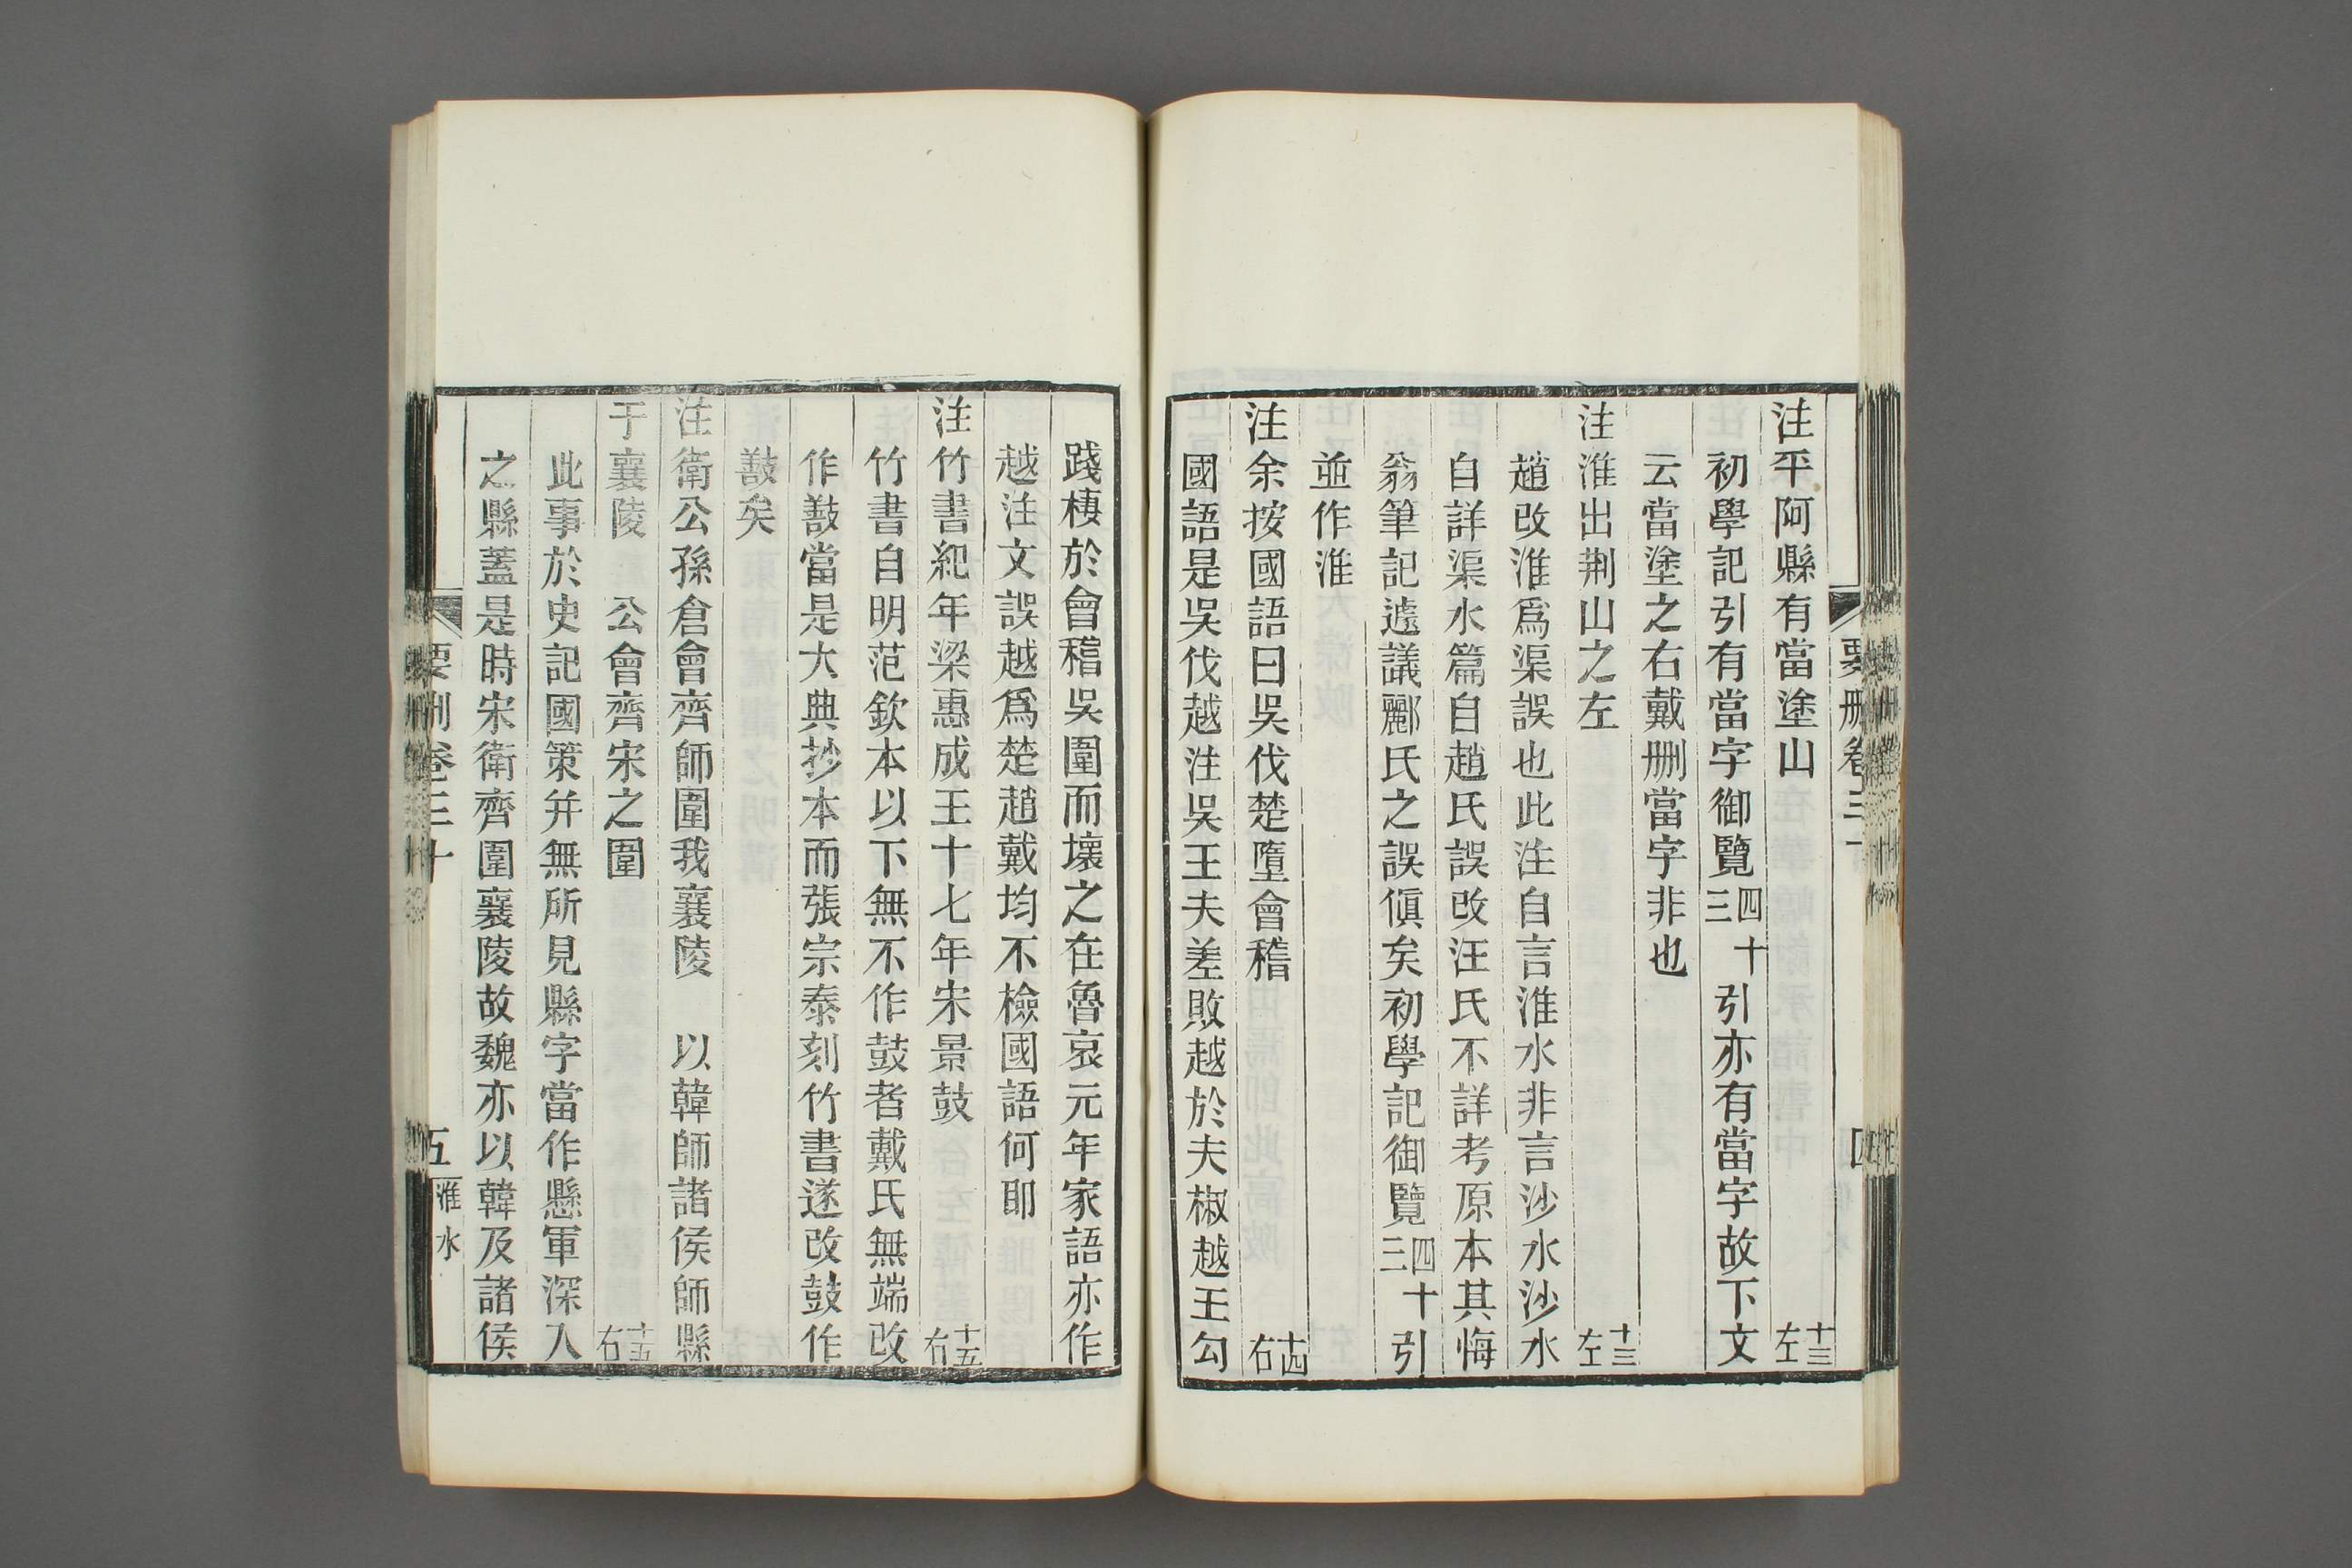 要刪卷三十
四
注平阿縣有當塗山 十三左
初學記引有當字御覽四十三引亦有當字故下文
云當塗之右戴刪當字非也
注淮出荆山之左 十三左
趙改淮爲渠誤也此注自言淮水非言沙水沙水
自詳渠水篇自趙氏誤改汪氏不詳考原本其悔
翁筆記遽議酈氏之誤傎矣初學記御覽四十三引
並作淮
注余按國語曰吳伐楚墮會稽 十四右
國語是吳伐越注吳王夫差敗越於夫椒越王勾
踐棲於會稽吳圍而壞之在魯哀元年家語亦作
越注文誤越爲楚趙戴均不檢國語何耶
注竹書紀年梁惠成王十七年宋景鼓 十五右
竹書自明范欽本以下無不作鼓者戴氏無端改
作敾當是大典抄本而張宗泰刻竹書遂改鼓作
敾矣
注衛公孫倉會齊師圍我襄陵　以韓師諸侯師縣
于襄陵　公會齊宋之圍 十五右
此事於史記國策并無所見縣字當作懸軍深入
之縣蓋是時宋衛齊圍襄陵故魏亦以韓及諸侯
要刪卷三十
五
淮水